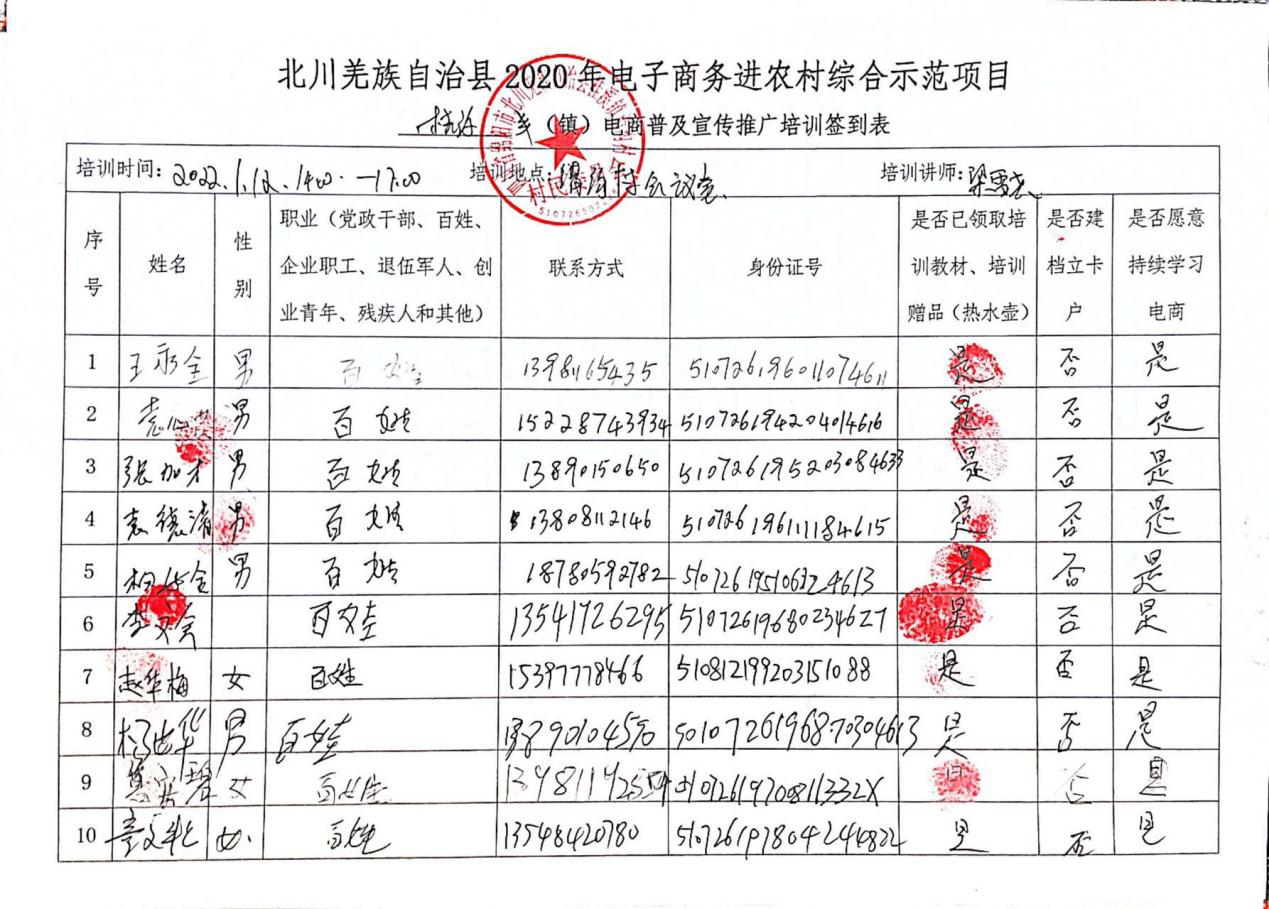 北川羌族自治县2020年电子商务进农村综合示范项目
乡(镇)电商普及宣传推广培训签到表
培训时间:2022.1.12.14:00-17:00 培训地点: 村会议室 培训讲师:
序号 姓名 性别 职业(党政干部、百姓、企业职工、退伍军人、创业青年、残疾人和其他) 联系方式 身份证号 是否已领取培训教材、培训赠品(热水壶) 是否建档立卡户 是否愿意持续学习电商
1 王永全 男 百姓 13981165435 510726196011074611 是 否 是
2 男 百姓 15228743934 510726194204014616 是 否 是
3 张加才 男 百姓 13890150650 510726195203084633 是 否 是
4 袁德清 男 百姓 13808112146 510726196111184615 是 否 是
5 男 百姓 18780592782 是 否 是
6 百姓 13541726295 51072619680234627 是 否 是
7 赵华梅 女 百姓 15397778466 510812199203151088 是 否 是
8 男 百姓 是 否 是
9 女 百姓 51072619700811332X 是 否 是
10 女 百姓 13548420780 是 否 是